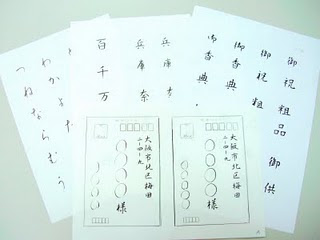 御祝 粗品 御供
御祝 粗
御香典
御香典
兵庫
兵庫 奈
百千万
わかよた
つねならむう
大阪市北区梅田
二-四-九
様
大阪市北区梅田
二-四-九
様